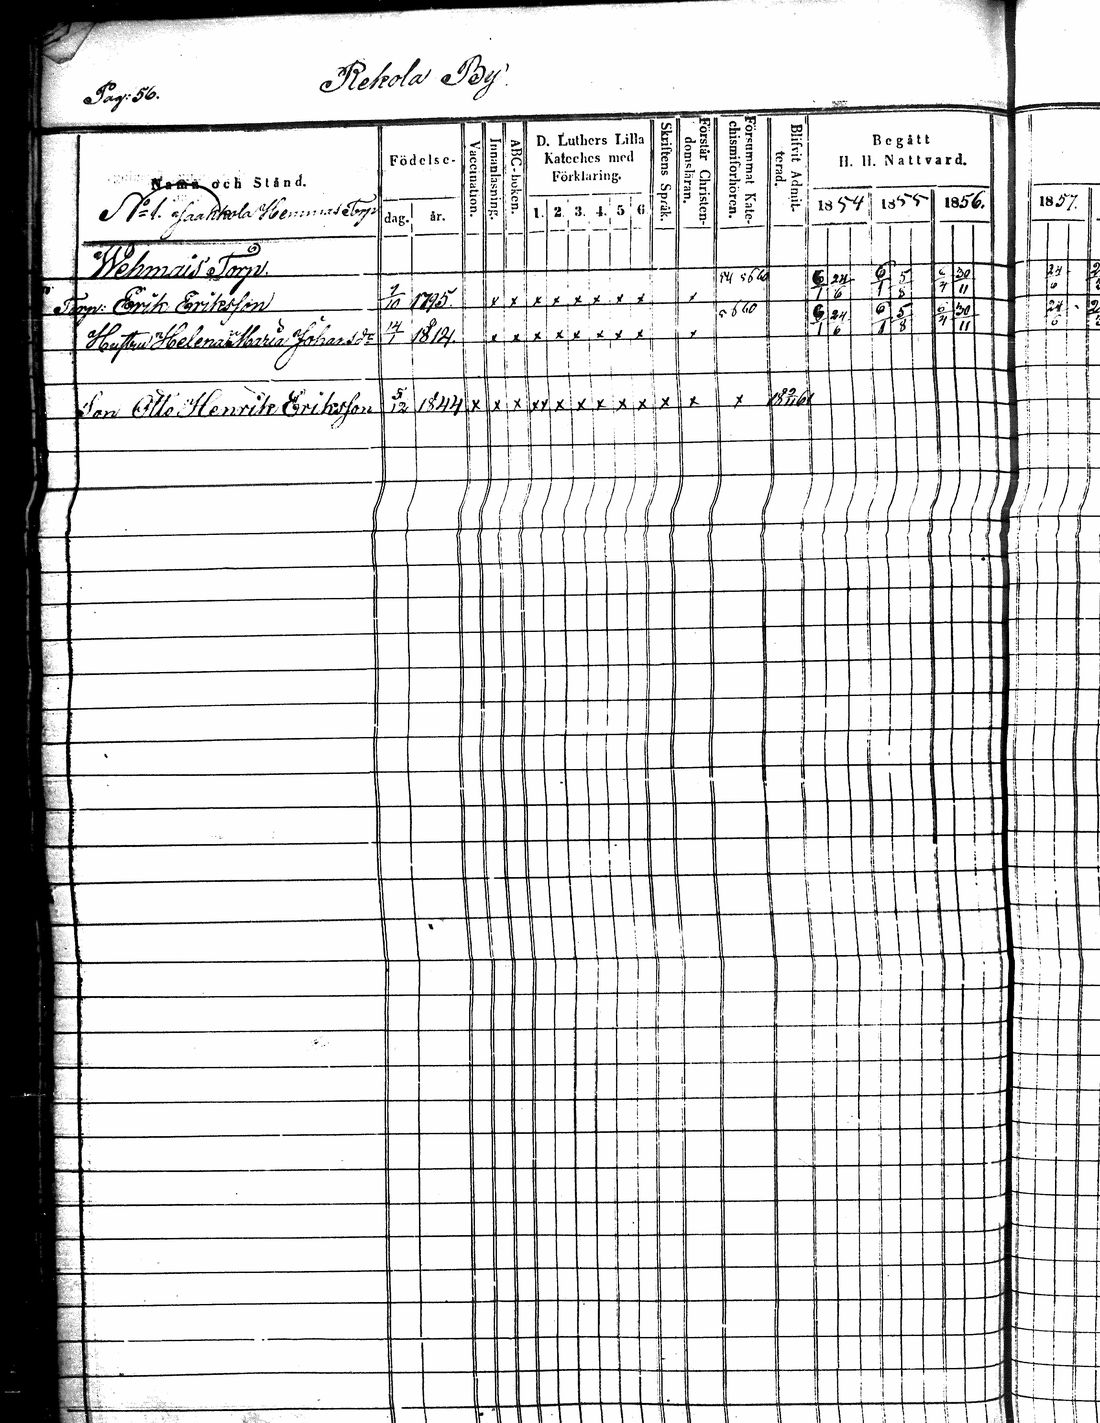 Pag: 56.
Rekola By.
Namn och Stånd.
Födelse-
dag. år.
Vaccination.
Innanläsning.
ABC-boken.
D. Luthers Lilla Kateches med Förklaring.
1. 2. 3. 4. 5 6
Skriftens Språk.
Förstår Christendomsläran.
Försummat Katechismiförhören.
Blifvit Admitterad.
Begått H. H. Nattvard.
1854 1855 1856. 1857.
No 1. Jaakkola Hemmans Torp
Wehmais Torp.
6/1 24/6 6/1 5/8 6/4 30/11 24/6
Torp: Erik Eriksson 7/10 1795. x x x x x x x x x
5660 6/1 24/6 6/1 5/8 6/4 30/11 24/6
Hustru Helena Maria Johansdr 14/1 1812. x x x x x x x x x
Son Otto Henrik Eriksson 5/12 1844 x x x xx x x x x x x x x